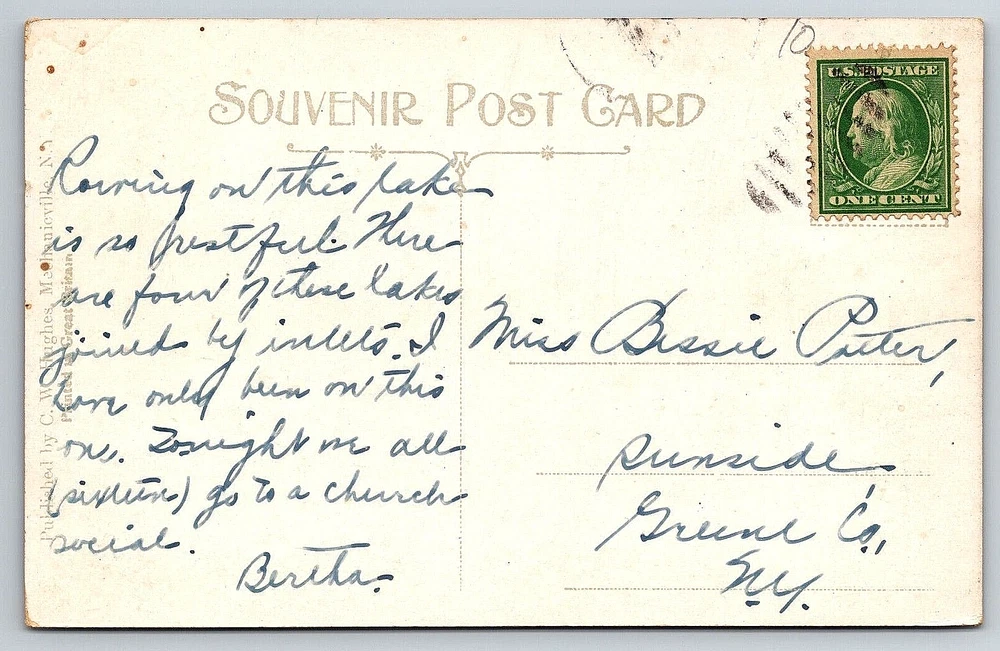 10
U.S. POSTAGE
ONE CENT
SOUVENIR POST CARD
Rowing on this lake
is so restful. There
are four of these lakes
joined by inlets. I
have only been on this
one. Tonight we all
(sixteen) go to a church
social.
Bertha.
Miss Bessie
Sunside
Greene Co.,
N.Y.
Published by C. W. Hughes, Mechanicville, N.Y.
Printed in Great Britain